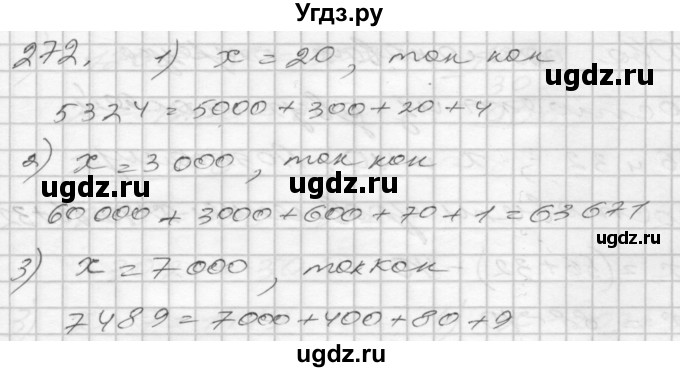 Угдз.ру
272. 1) x = 20, так как
ugdz.ru
5324 = 5000 + 300 + 20 + 4
2) x = 3 000, так как
ugdz.ru ugdz.ru
60 000 + 3000 + 600 + 70 + 1 = 63 671
3) x = 7 000, так как
ugdz.ru
7489 = 7000 + 400 + 80 + 9
ugdz.ru